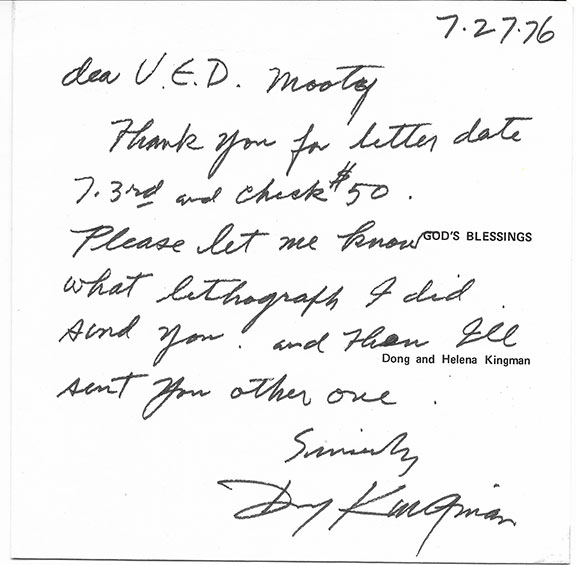 7.27.76
dea V.E.D. Mooty
Thank you for letter date
7.3rd and check $50.
Please let me know GOD'S BLESSINGS
what lithograph I did
send you. and then I'll
Dong and Helena Kingman
sent you other one.
Sincerely
Dong Kingman